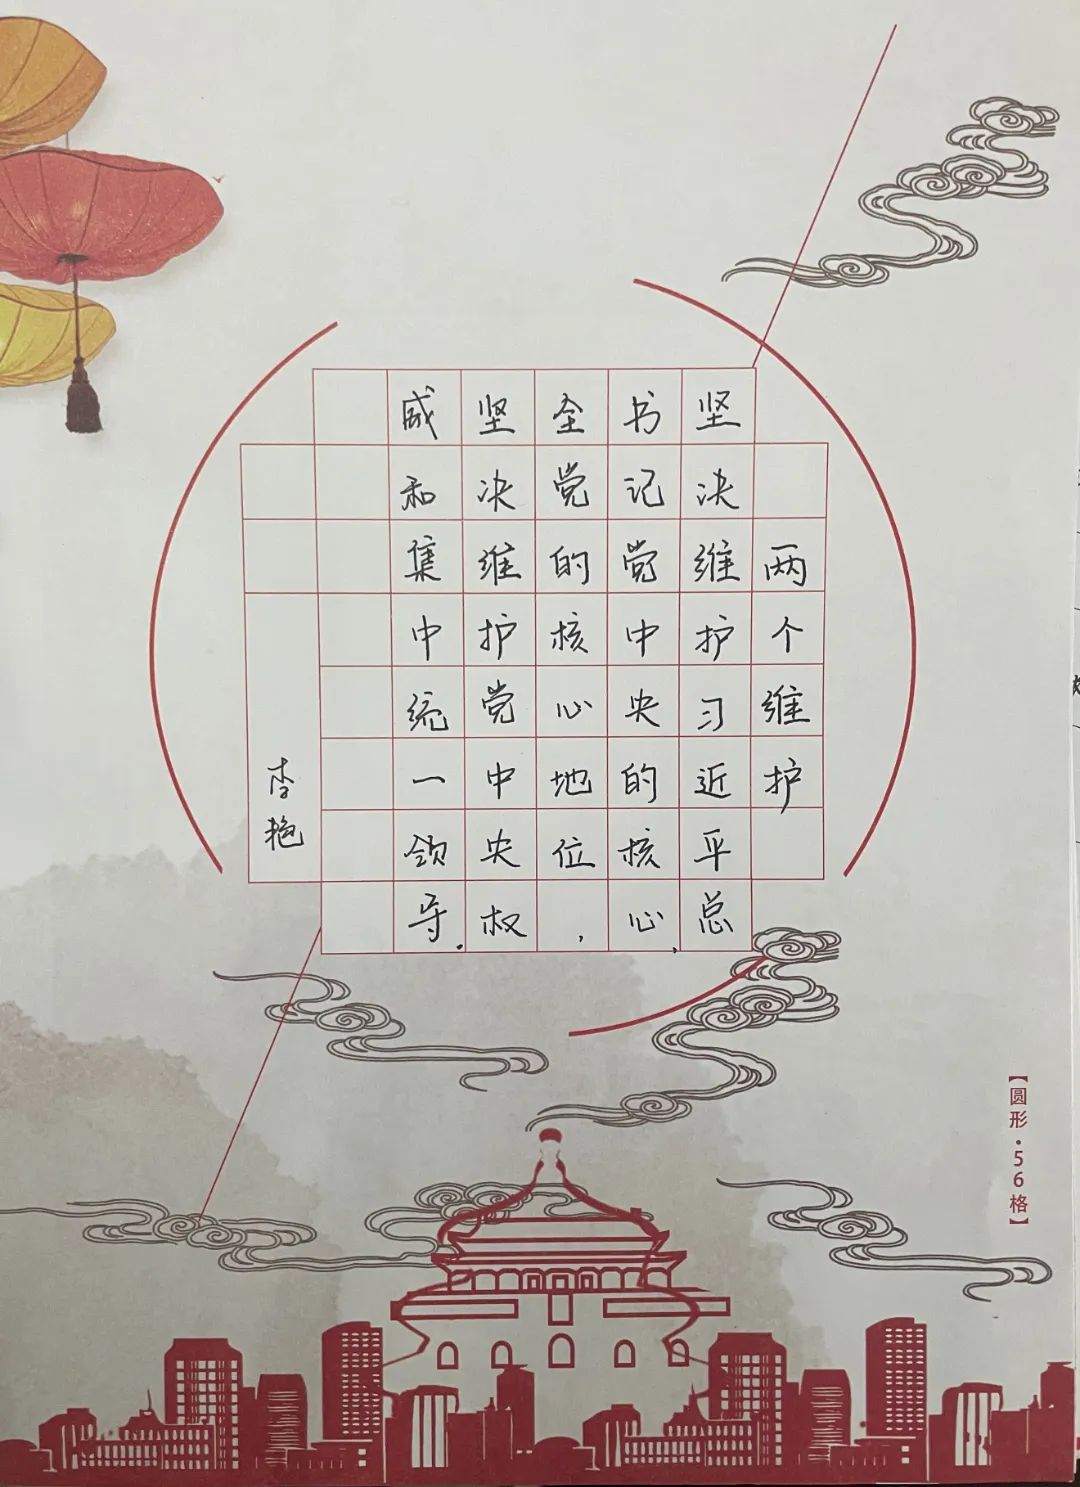 两个维护
坚决维护习近平总
书记党中央的核心、
全党的核心地位,
坚决维护党中央权
威和集中统一领导.
李艳
【圆形·56格】